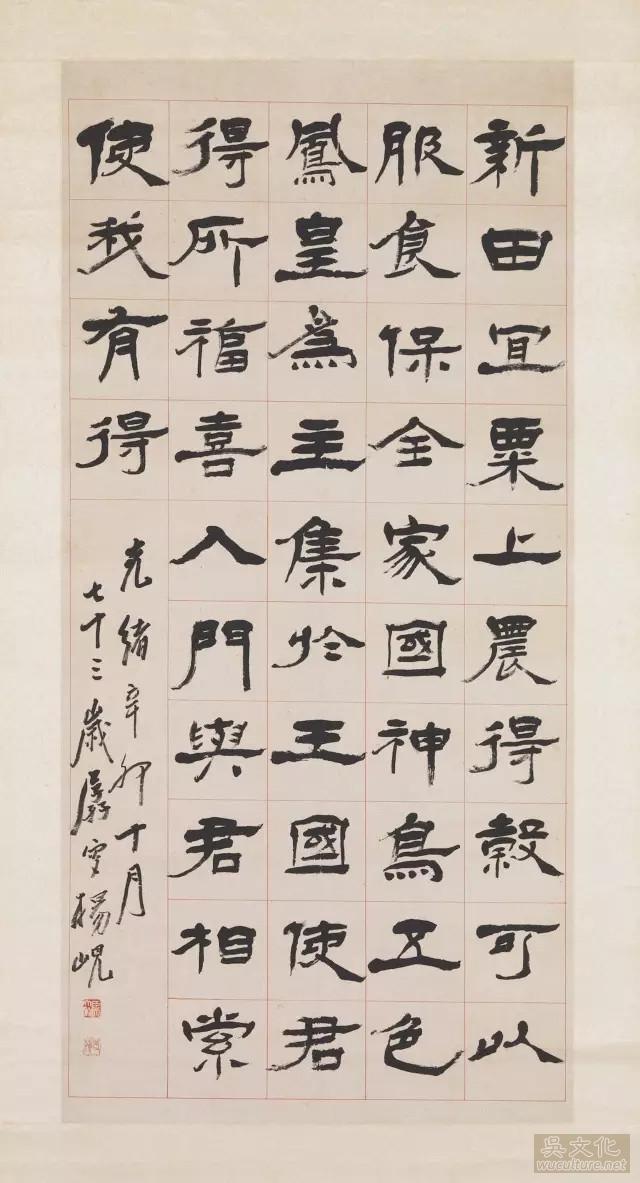 新田宜粟上農得穀可以
服食保全家國神鳥五色
鳳皇爲主集於王國使君
得所福喜入門與君相索
使我有得
光緒辛卯十月
七十三歲楊峴
吳文化
wuculture.net